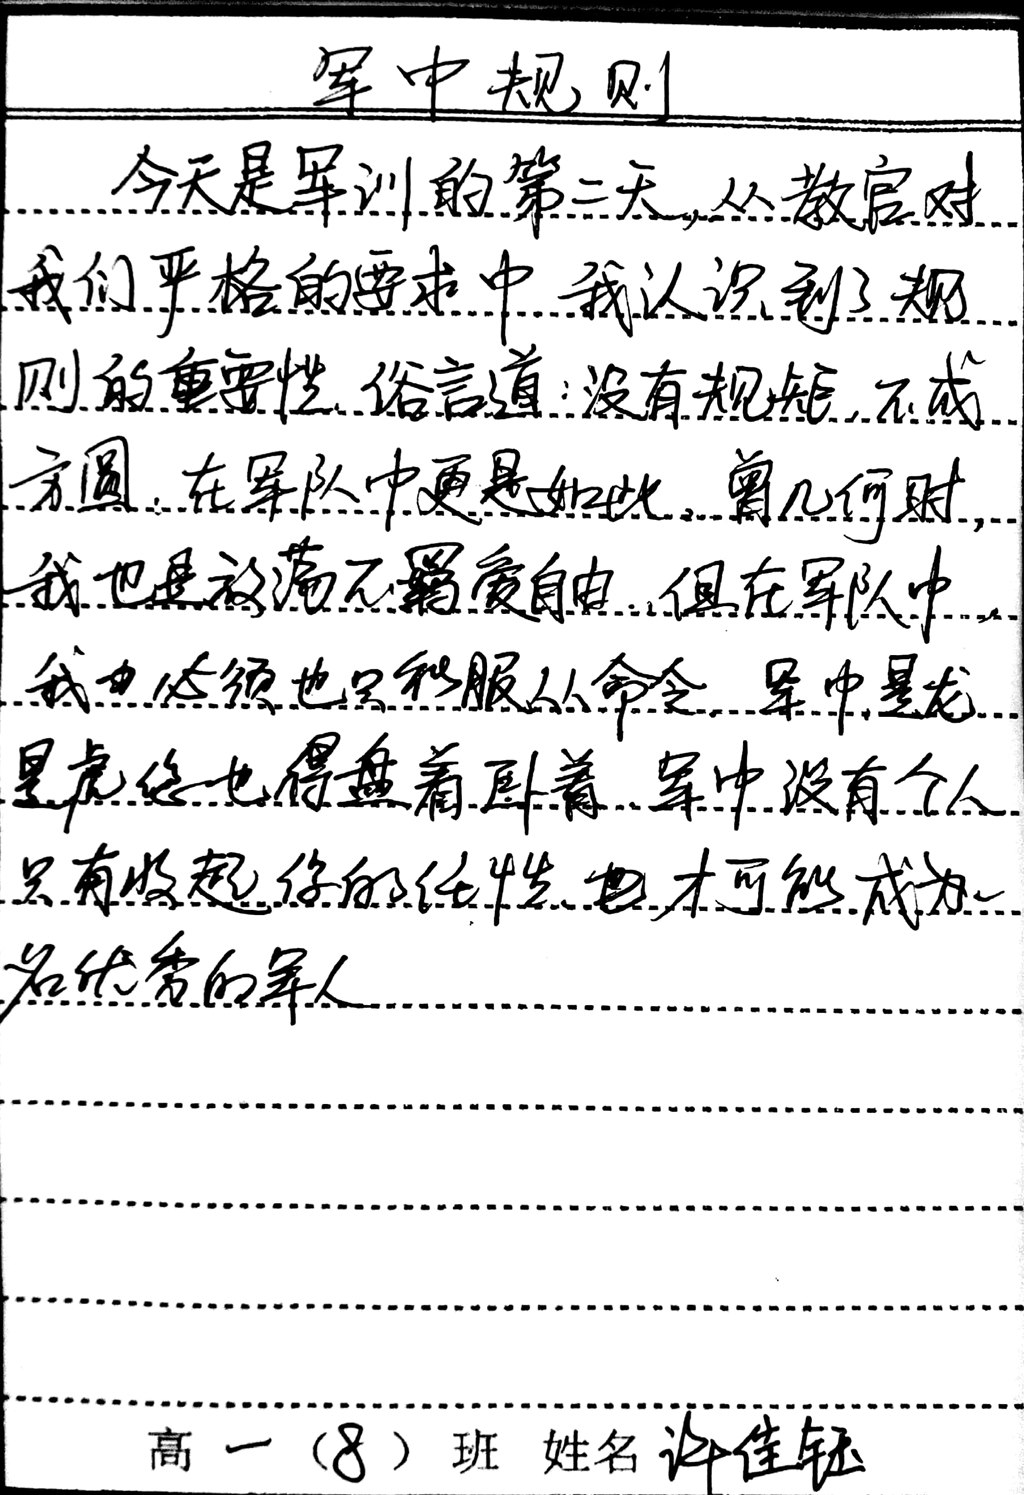 军中规则
今天是军训的第二天,从教官对
我们严格的要求中 我认识到了规
则的重要性、俗言道:没有规矩,不成
方圆、在军队中更是如此、曾几何时,
我也是放荡不羁爱自由、但在军队中,
我也必须也只能服从命令、军中,是龙
是虎您也得盘着卧着、军中没有个人
只有收起你的任性、也才可能成为一
名优秀的军人
高一(8)班 姓名 许佳钰